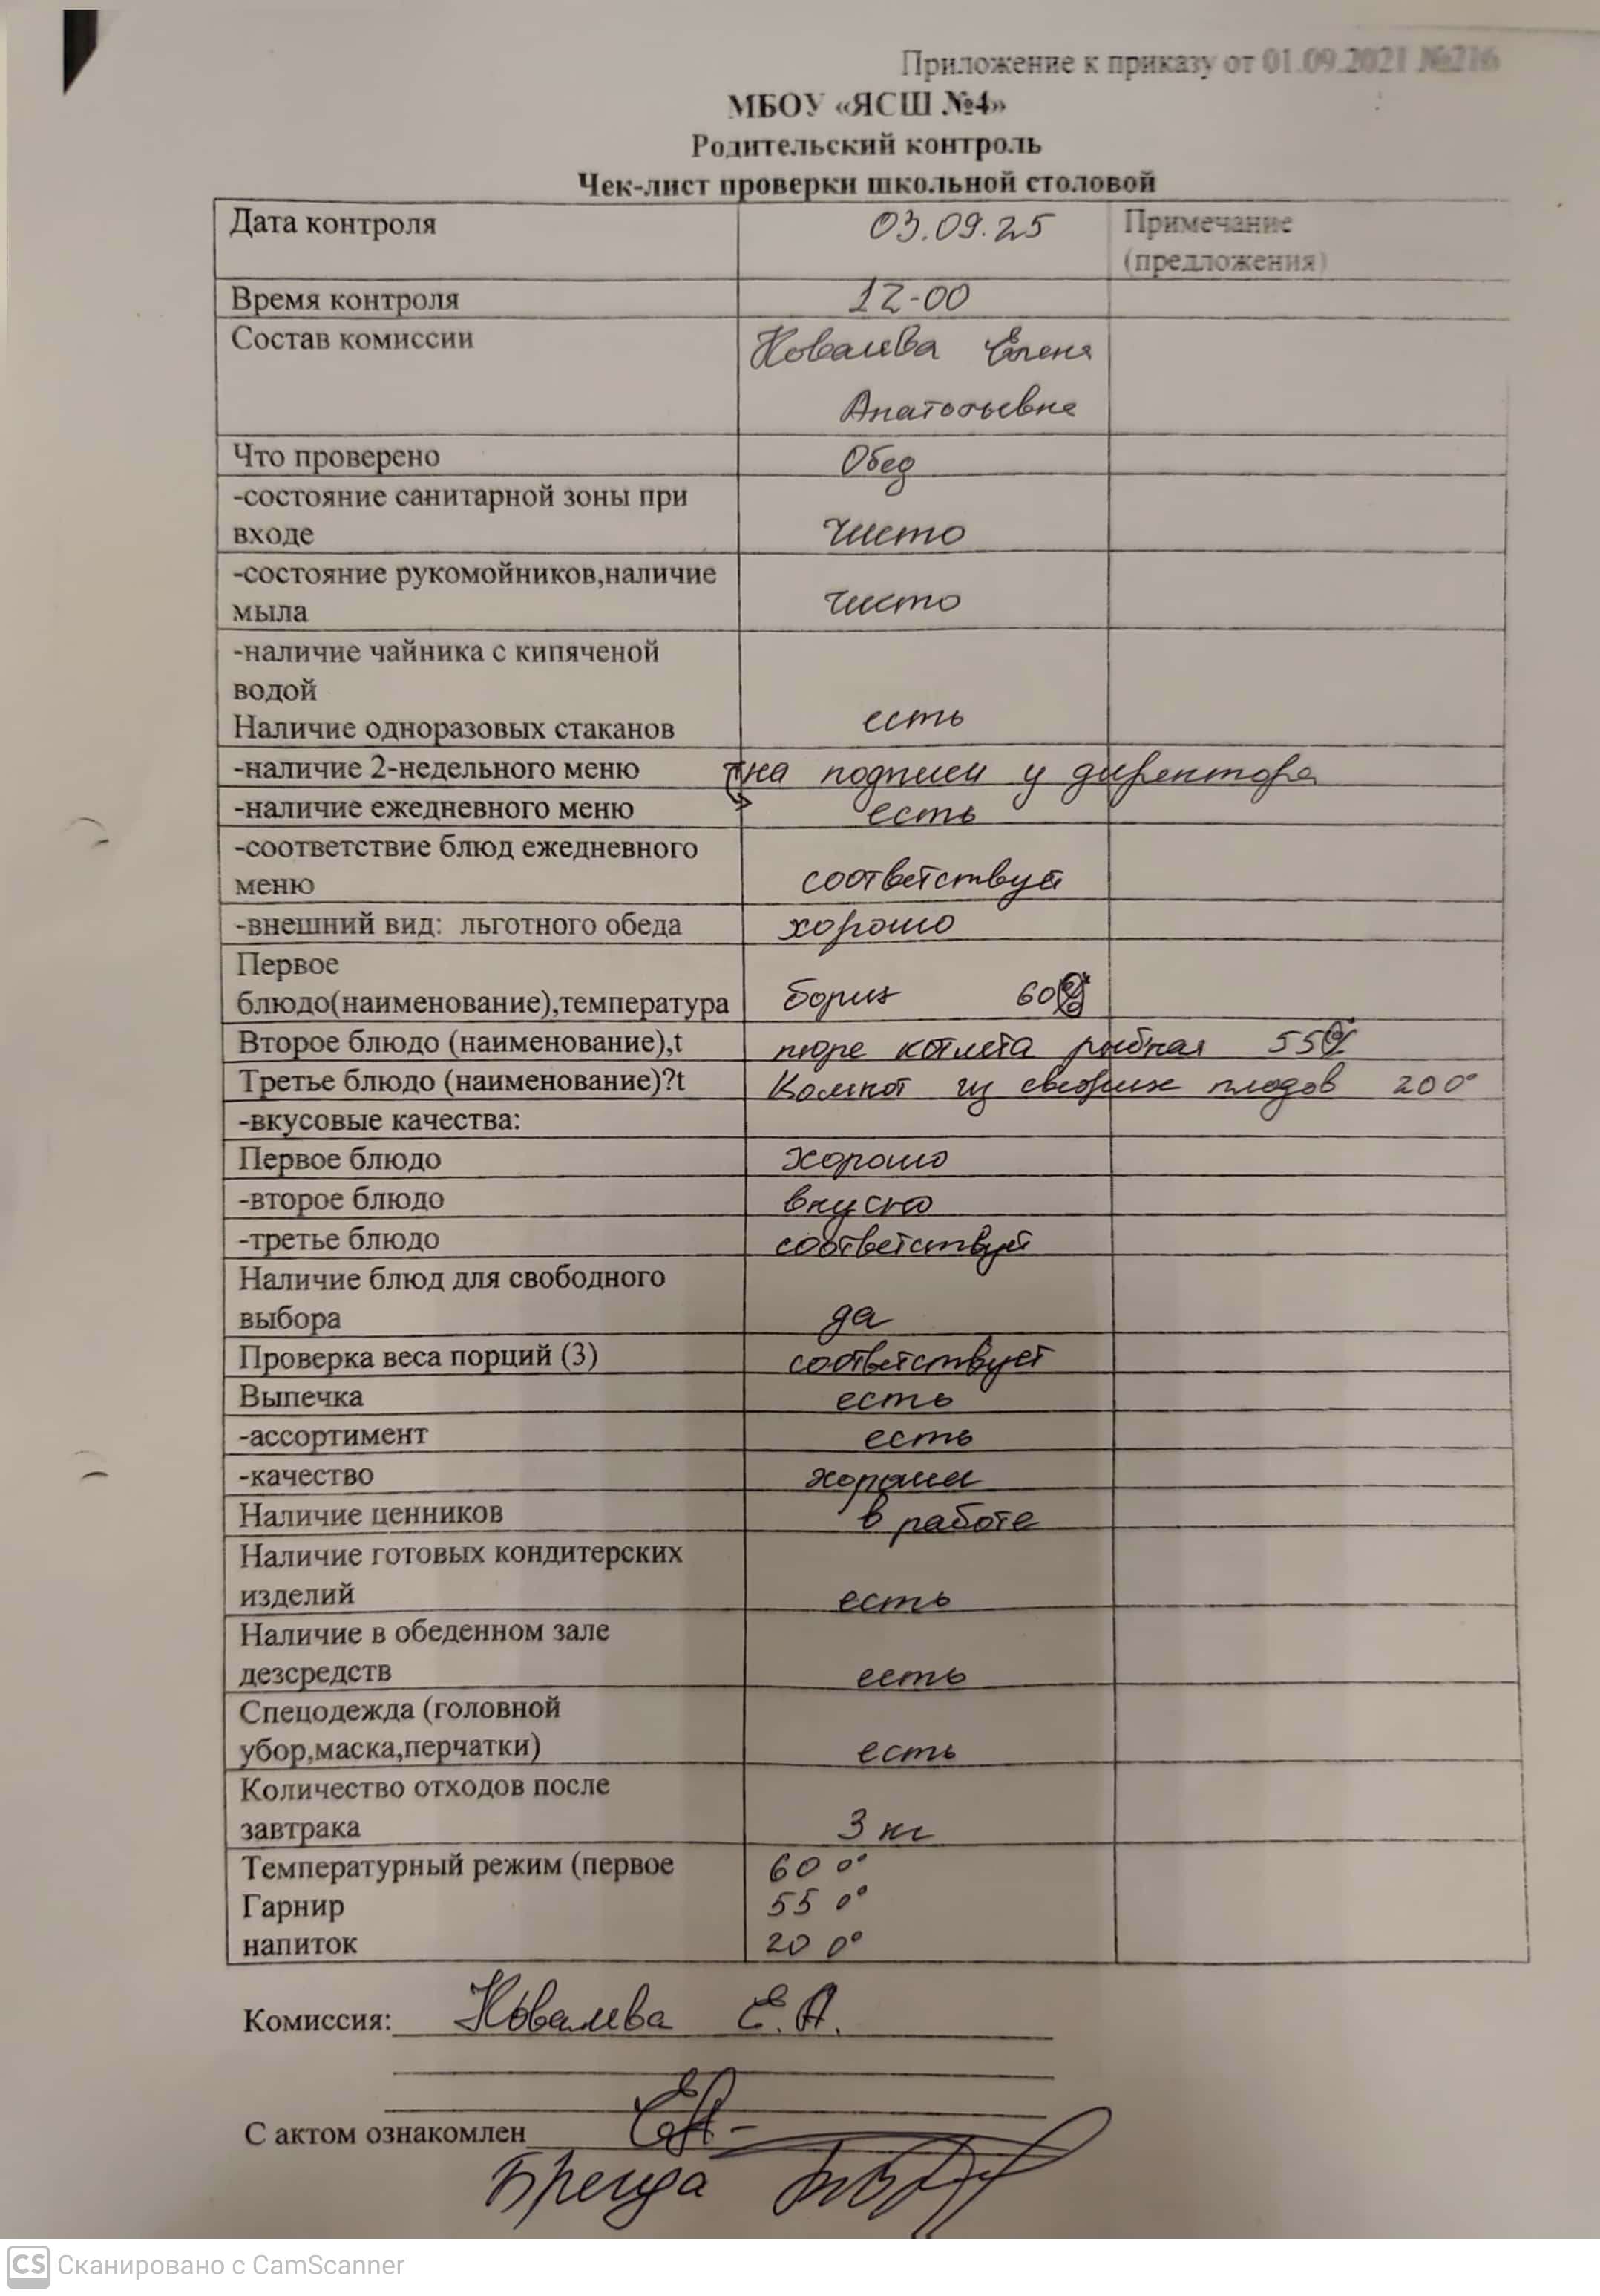 Приложение к приказу от 01.09.2021 №216
МБОУ «ЯСШ №4»
Родительский контроль
Чек-лист проверки школьной столовой
Дата контроля 03.09.25 Примечание
(предложения)
Время контроля 12-00
Состав комиссии Ковалева Елена
Анатольевна
Что проверено Обед
-состояние санитарной зоны при
входе чисто
-состояние рукомойников,наличие
мыла чисто
-наличие чайника с кипяченой
водой
Наличие одноразовых стаканов есть
-наличие 2-недельного меню на подписи у директора
-наличие ежедневного меню есть
-соответствие блюд ежедневного
меню соответствует
-внешний вид: льготного обеда хорошо
Первое
блюдо(наименование),температура борщ 60
Второе блюдо (наименование),t пюре котлета рыбная 55
Третье блюдо (наименование)?t Компот из свежих плодов 20 0°
-вкусовые качества:
Первое блюдо хорошо
-второе блюдо вкусно
-третье блюдо соответствует
Наличие блюд для свободного
выбора да
Проверка веса порций (3) соответствует
Выпечка есть
-ассортимент есть
-качество хорошее
Наличие ценников в работе
Наличие готовых кондитерских
изделий есть
Наличие в обеденном зале
дезсредств есть
Спецодежда (головной
убор,маска,перчатки) есть
Количество отходов после
завтрака 3 кг
Температурный режим (первое 60 0°
Гарнир 55 0°
напиток 20 0°
Комиссия: Ковалева Е.А.
С актом ознакомлен
CS Сканировано с CamScanner